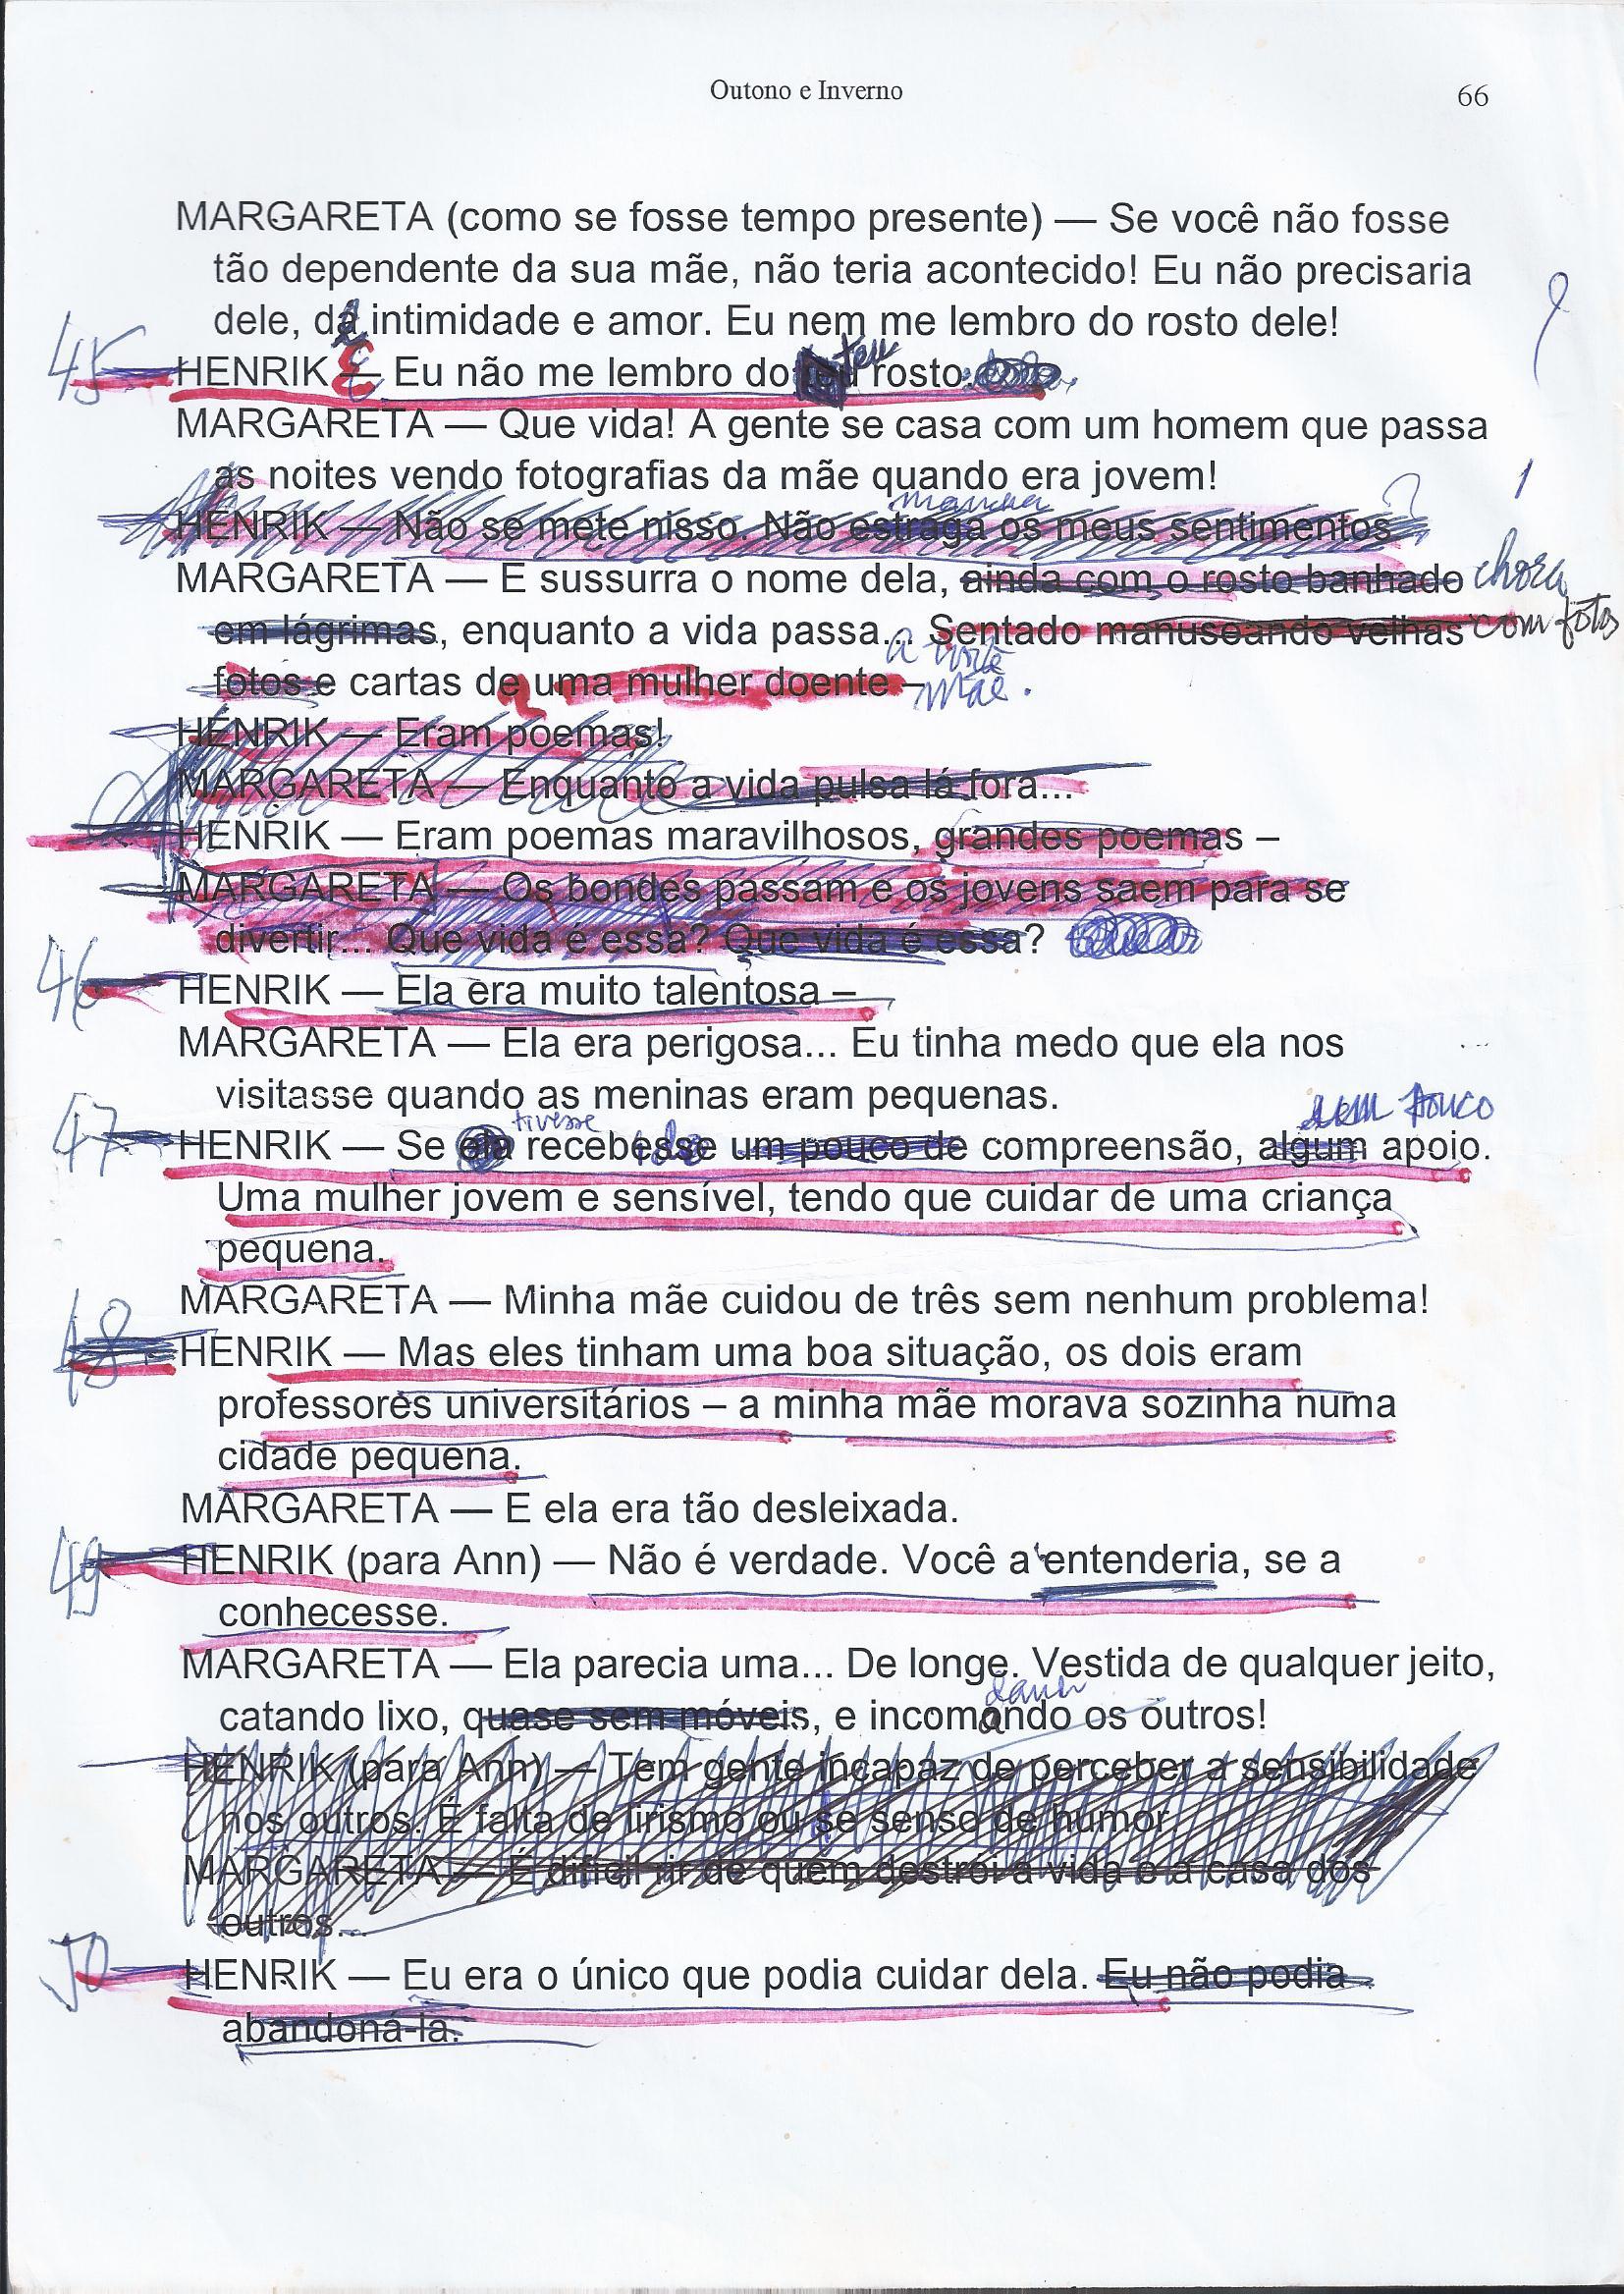 Outono e Inverno
66
MARGARETA (como se fosse tempo presente) — Se você não fosse
tão dependente da sua mãe, não teria acontecido! Eu não precisaria
dele, da intimidade e amor. Eu nem me lembro do rosto dele!
45 HENRIK — E Eu não me lembro do teu rosto.
MARGARETA — Que vida! A gente se casa com um homem que passa
as noites vendo fotografias da mãe quando era jovem!
mancha
HENRIK — Não se mete nisso. Não estraga os meus sentimentos.
MARGARETA — E sussurra o nome dela, ainda com o rosto banhado chora
em lágrimas, enquanto a vida passa... Sentado manuseando velhas com fotos
a
fotos e cartas de uma mulher doente – mãe.
HENRIK — Eram poemas!
MARGARETA — Enquanto a vida pulsa lá fora...
HENRIK — Eram poemas maravilhosos, grandes poemas –
MARGARETA — Os bondes passam e os jovens saem para se
divertir... Que vida é essa? Que vida é essa?
46 HENRIK — Ela era muito talentosa –
MARGARETA — Ela era perigosa... Eu tinha medo que ela nos
visitasse quando as meninas eram pequenas.
tivesse um pouco
47 HENRIK — Se ela recebesse um pouco de compreensão, algum apoio.
Uma mulher jovem e sensível, tendo que cuidar de uma criança
pequena.
MARGARETA — Minha mãe cuidou de três sem nenhum problema!
48 HENRIK — Mas eles tinham uma boa situação, os dois eram
professores universitários – a minha mãe morava sozinha numa
cidade pequena.
MARGARETA — E ela era tão desleixada.
49 HENRIK (para Ann) — Não é verdade. Você a entenderia, se a
conhecesse.
MARGARETA — Ela parecia uma... De longe. Vestida de qualquer jeito,
catando lixo, quase sem móveis, e incomando os outros!
HENRIK (para Ann) — Tem gente incapaz de perceber a sensibilidade
nos outros. É falta de lirismo ou se senso de humor
MARGARETA — É difícil rir de quem destrói a vida e a casa dos
outros...
50 HENRIK — Eu era o único que podia cuidar dela. Eu não podia
abandoná-la.